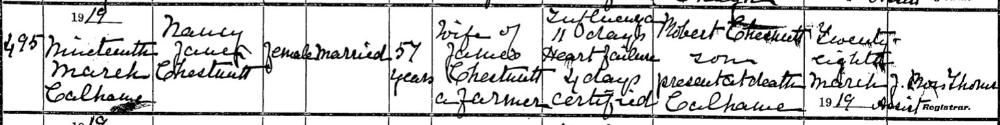 1919
495
Nineteenth
March
Calhame
Nancy
Jane
Chestnutt
Female
Married
57
years
Wife of
James
Chestnutt
a farmer
Influenza
11 days
Heart failure
4 days
certified
Robert Chestnutt
son
present at death
Calhame
Twenty-
eighth
March
1919
Assist Registrar.
19